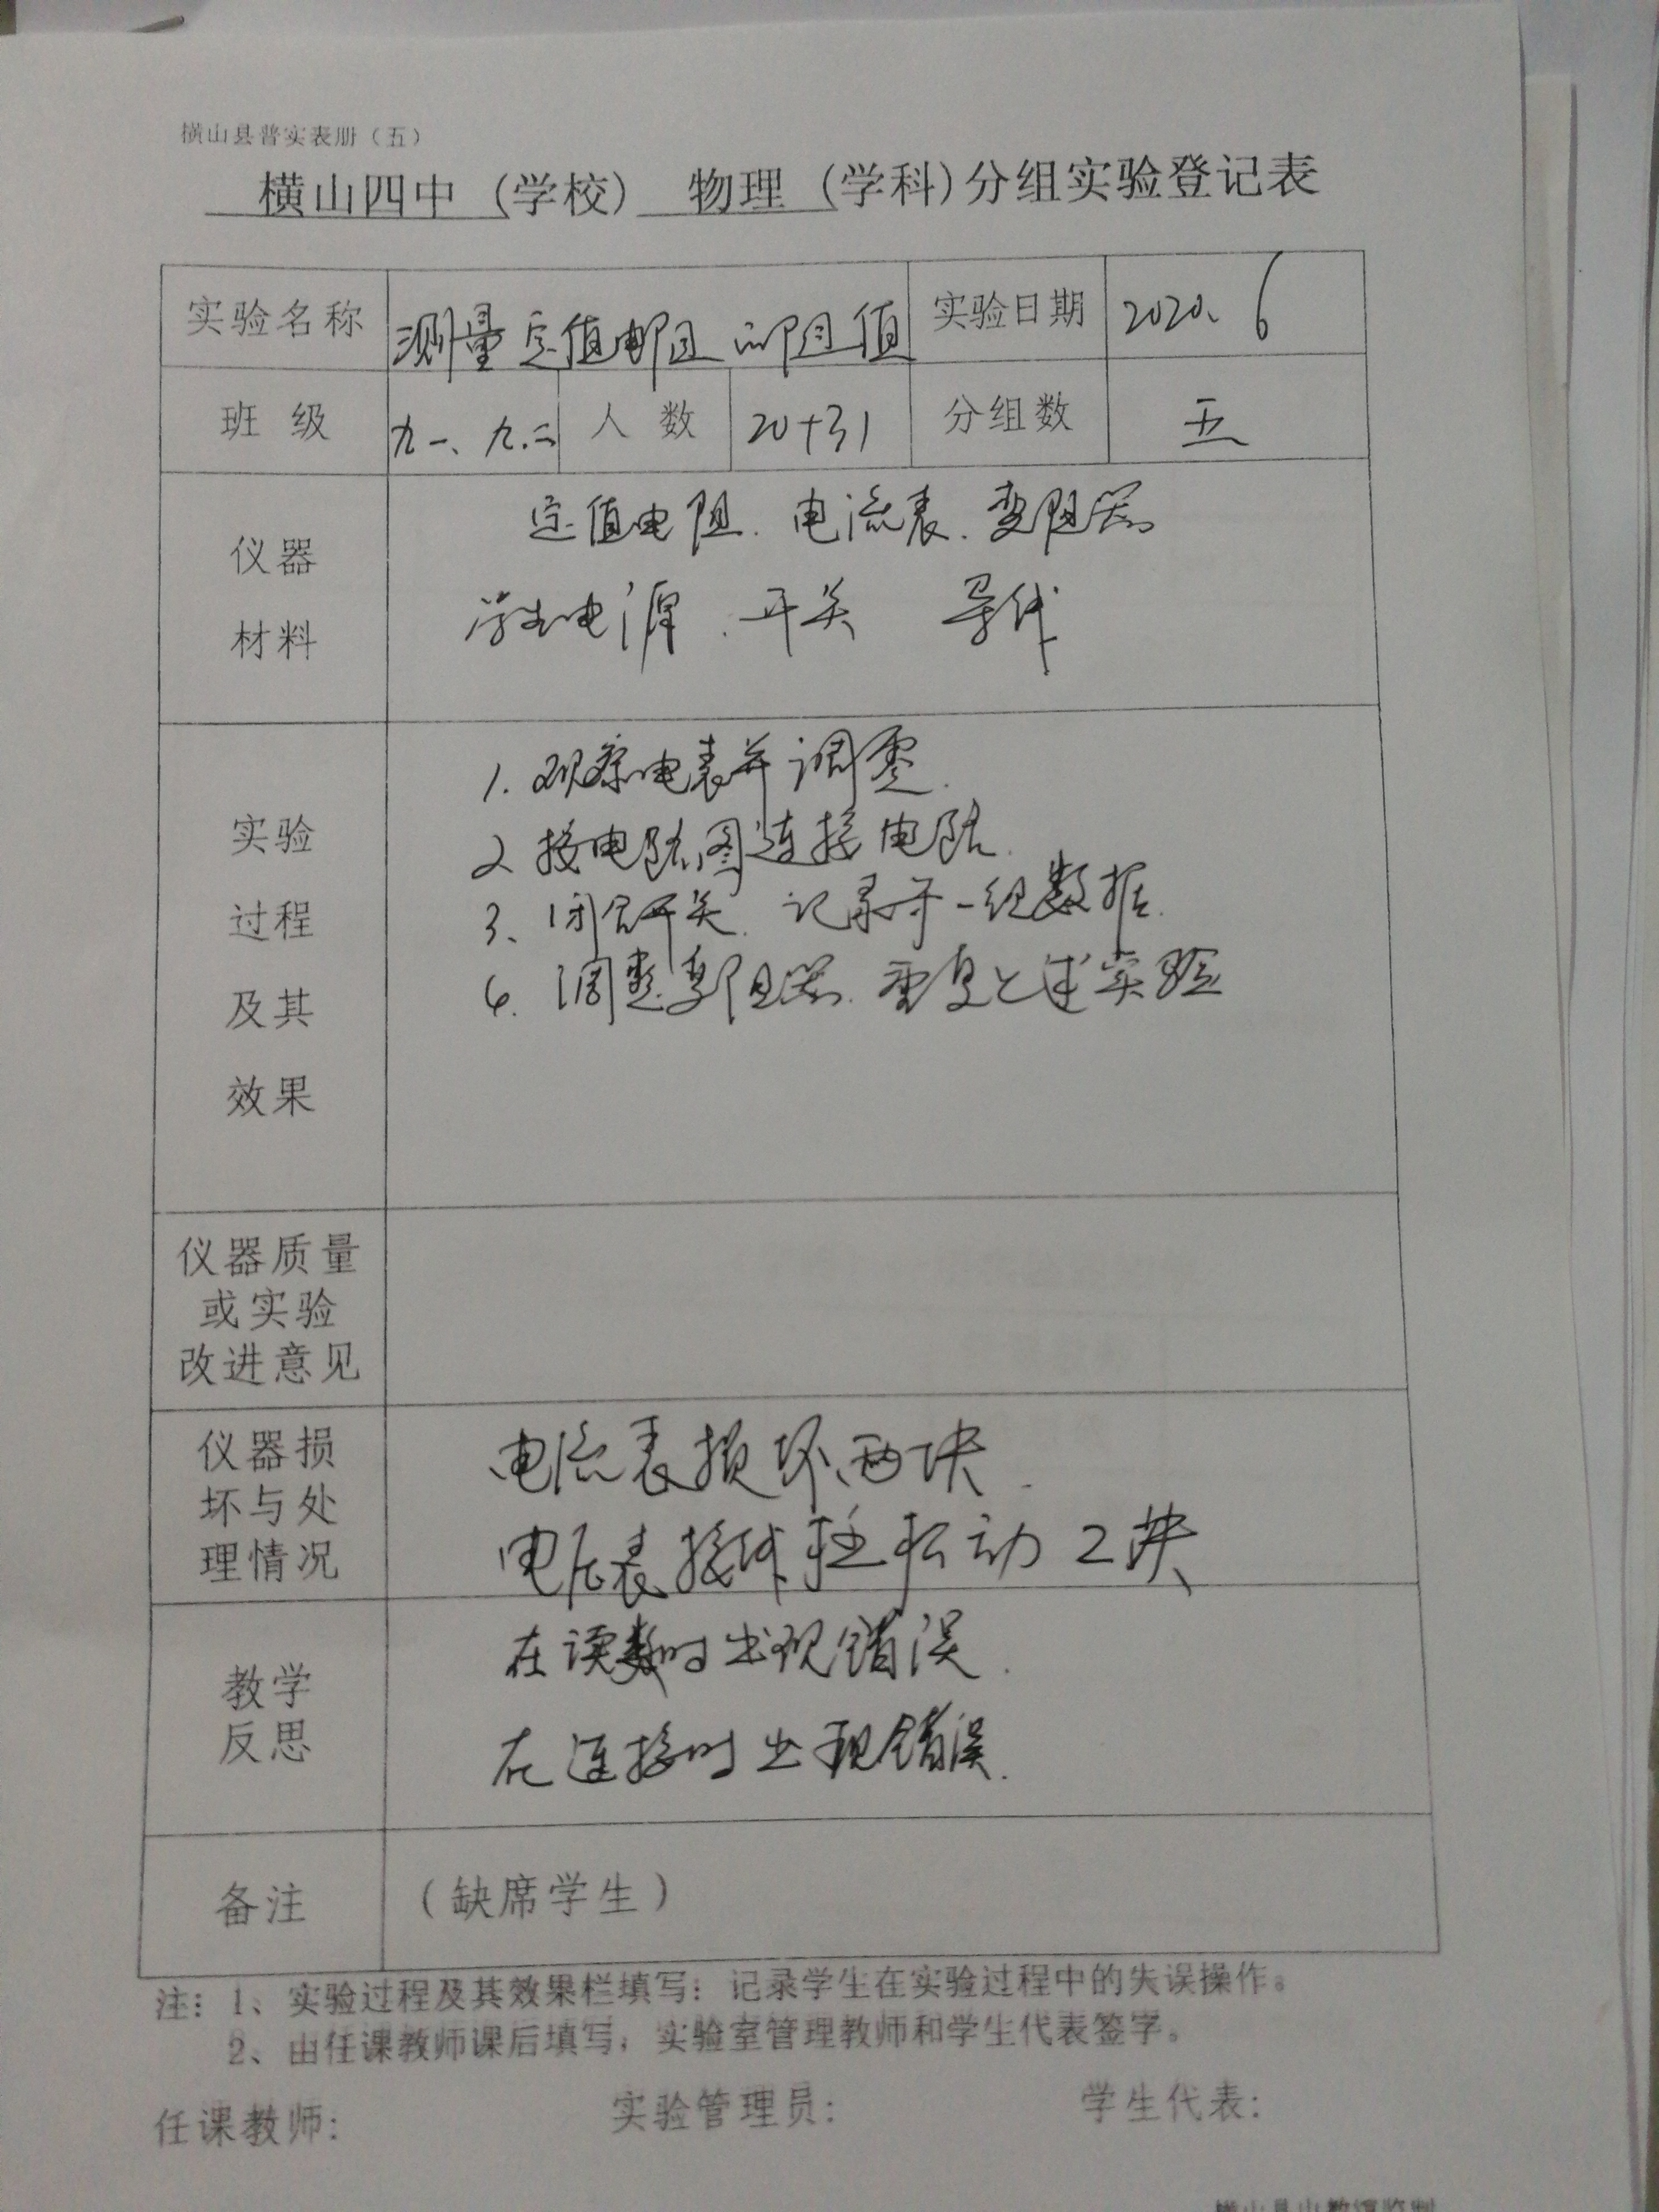 横山县普实表册（五）
横山四中 (学校) 物理 (学科)分组实验登记表
实验名称 测量定值电阻的阻值 实验日期 2020、6
班 级 九一、九.二 人 数 20+31 分组数 五
仪器
材料
定值电阻. 电流表. 变阻器
学生电源. 开关 导线
实验
过程
及其
效果
1. 观察电表并调零.
2 按电路图连接电路.
3、闭合开关. 记录第一组数据.
4. 调整变阻器. 重复上述实验
仪器质量
或实验
改进意见
仪器损
坏与处
理情况
电流表损坏两块.
电压表接线柱松动2块
教学
反思
在读数时出现错误.
在连接时出现错误.
备注 （缺席学生）
注：1、实验过程及其效果栏填写：记录学生在实验过程中的失误操作。
2、由任课教师课后填写，实验室管理教师和学生代表签字。
任课教师: 实验管理员: 学生代表: